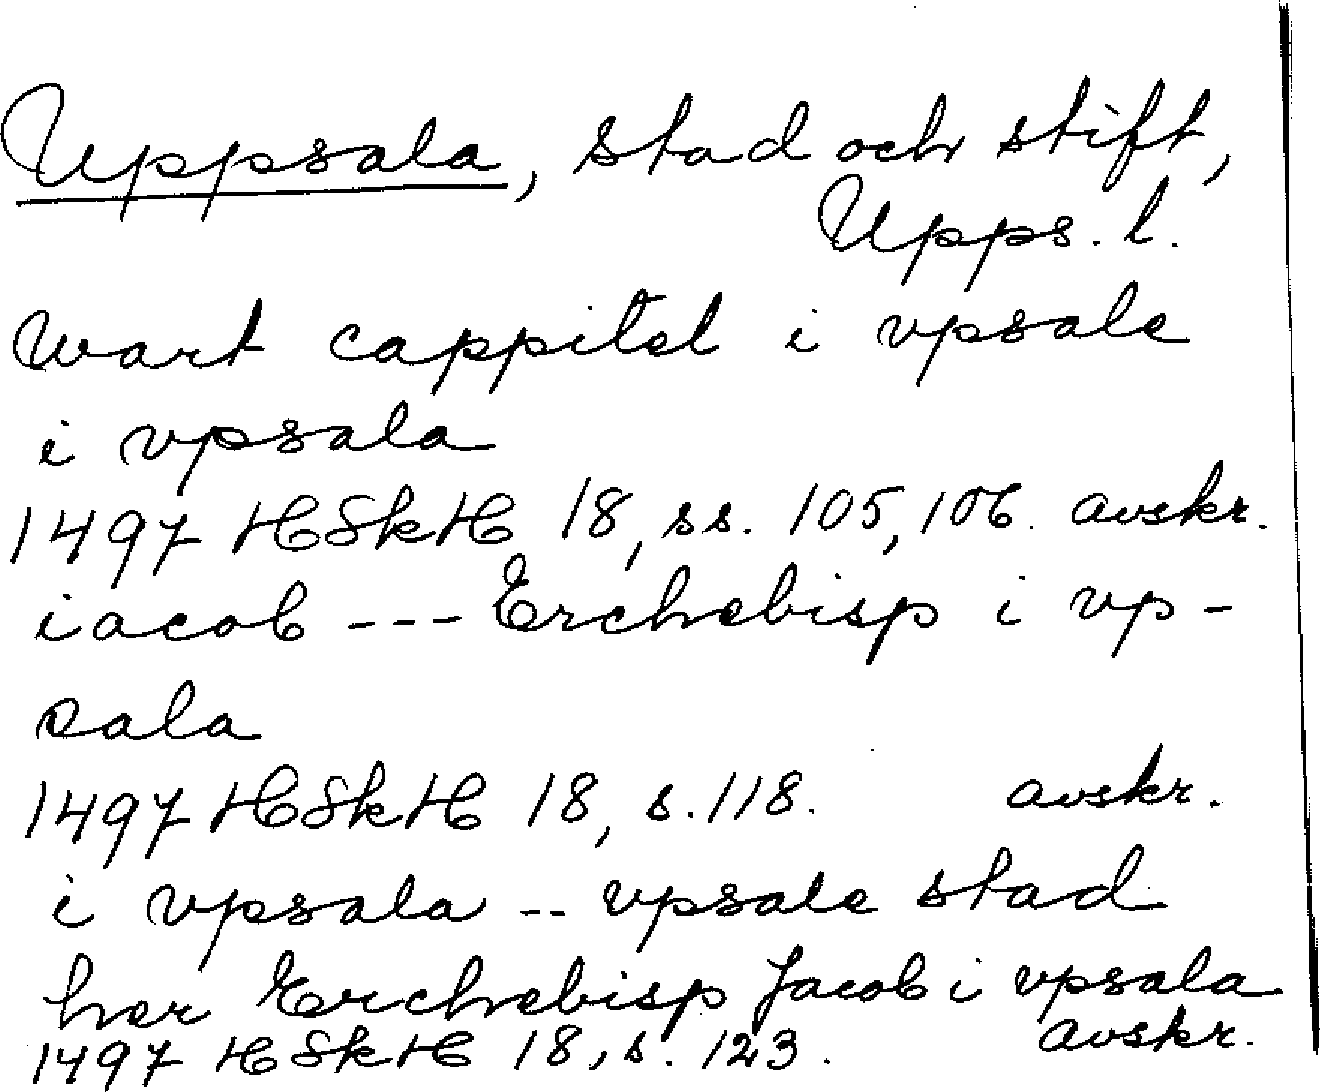 Uppsala, stad och stift,
Upps. l.
wart cappitel i vpsale
i vpsala
1497 HSkH 18, ss. 105, 106. avskr.
iacob --- Erchebisp i vp-
sala
1497 HSkH 18, s. 118. avskr.
i vpsala -- vpsale stad
her Erchebisp Jacob i vpsala
1497 HSkH 18, s. 123. avskr.